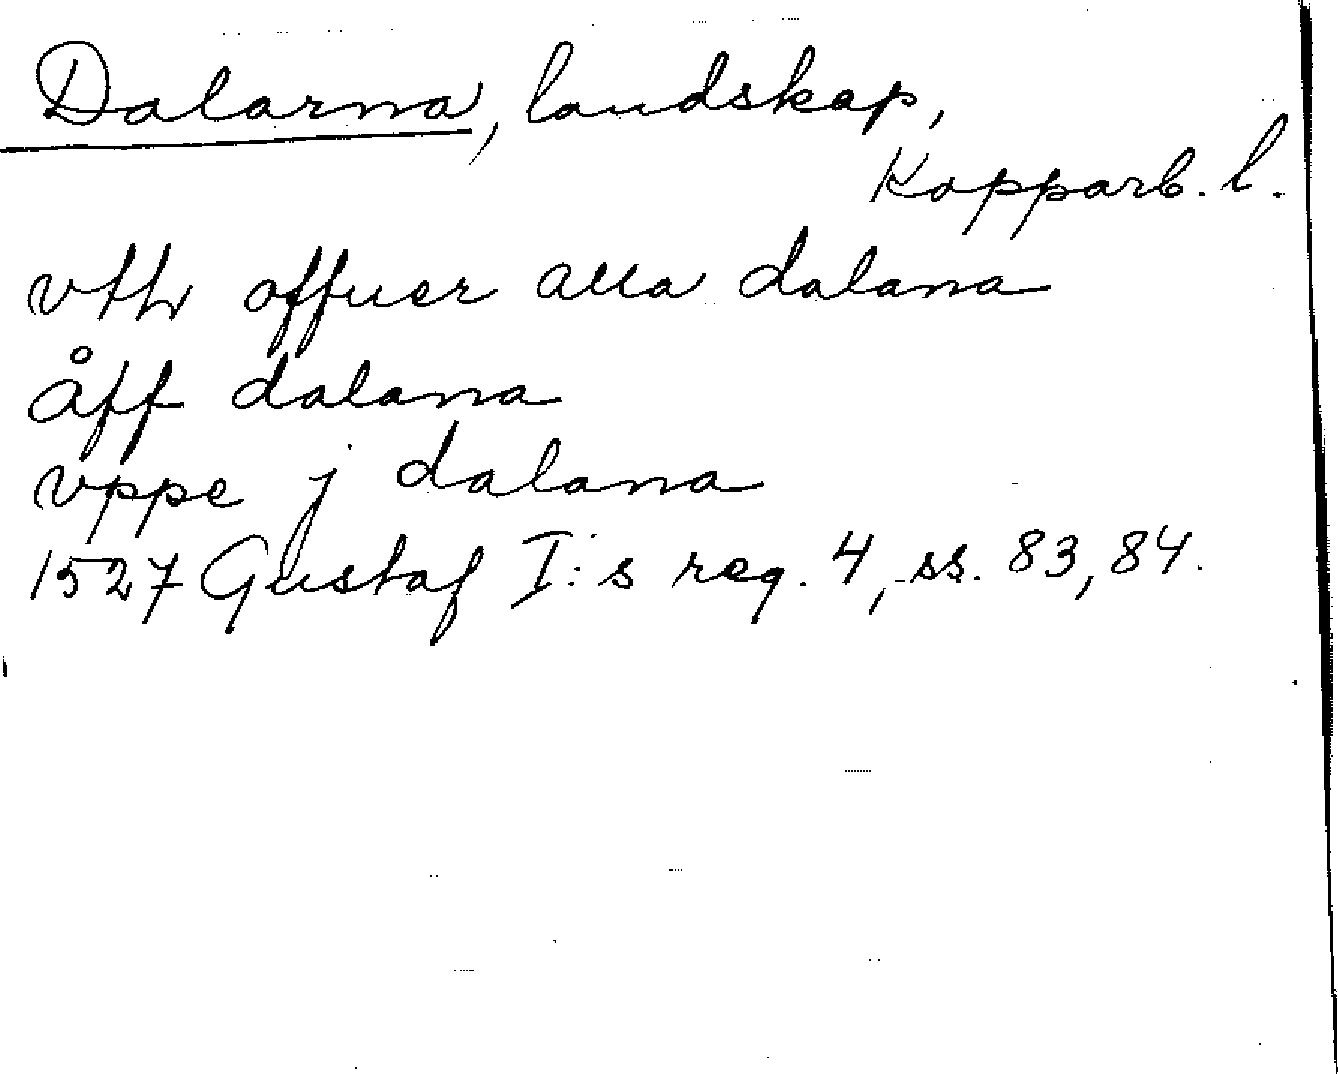 Dalarna, landskap,
Kopparb. l.
vth offuer alla dalana
åff dalana
vppe j dalana
1527 Gustaf I:s reg. 4, ss. 83, 84.